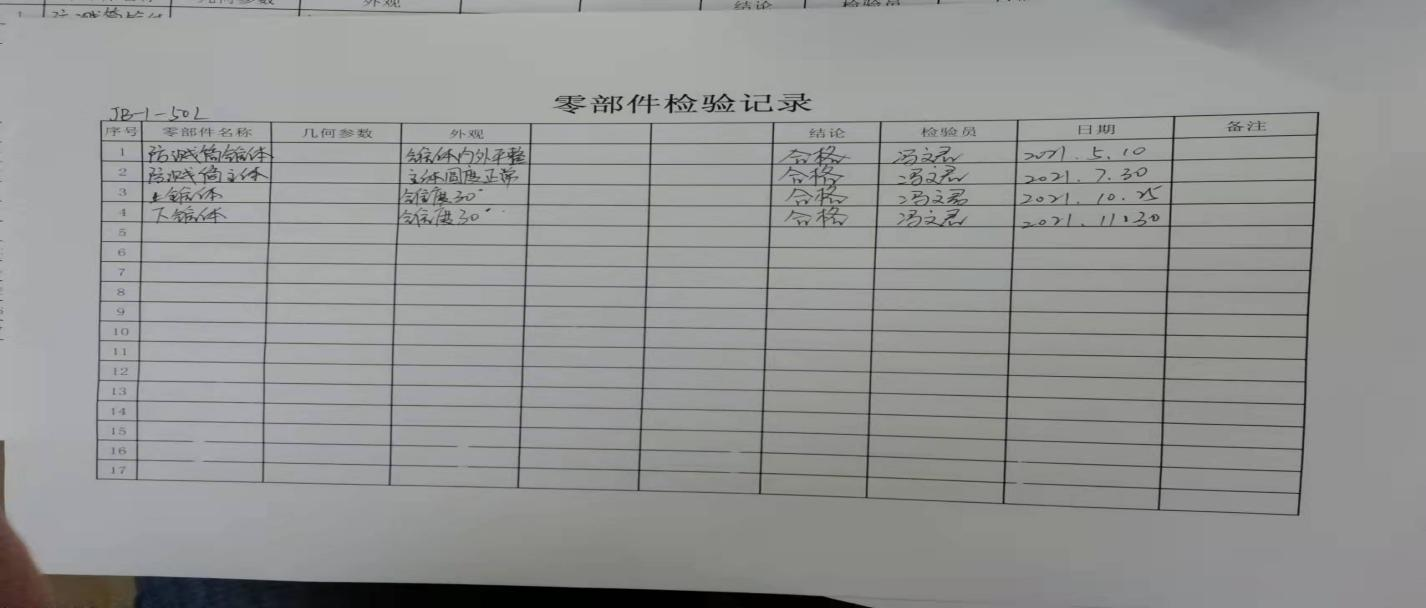 几何参数
外观
结论
检验员
1
零部件检验记录
JB-1-50L
序号 零部件名称 几何参数 外观 结论 检验员 日期 备注
1 防溅筒锥体 锥体内外平整 合格 冯文君 2021.5.10
2 防溅筒主体 主体圆度正常 合格 冯文君 2021.7.30
3 上锥体 锥度30° 合格 冯文君 2021.10.25
4 下锥体 锥度30° 合格 冯文君 2021.11.30
5
6
7
8
9
10
11
12
13
14
15
16
17